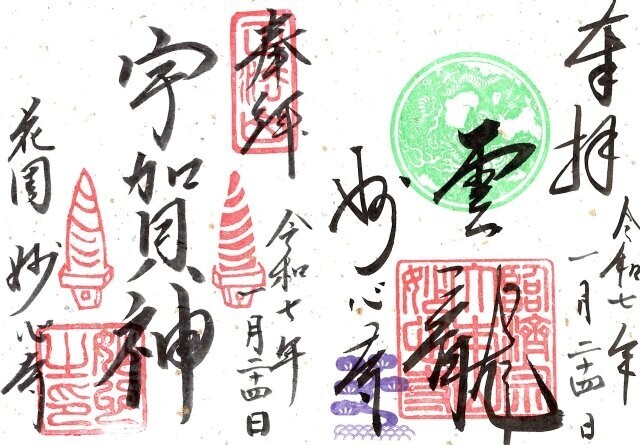 奉拝
令和七年
一月二十四日
雲龍
妙心寺
奉拝
令和七年
一月二十四日
宇賀神
花園
妙心寺